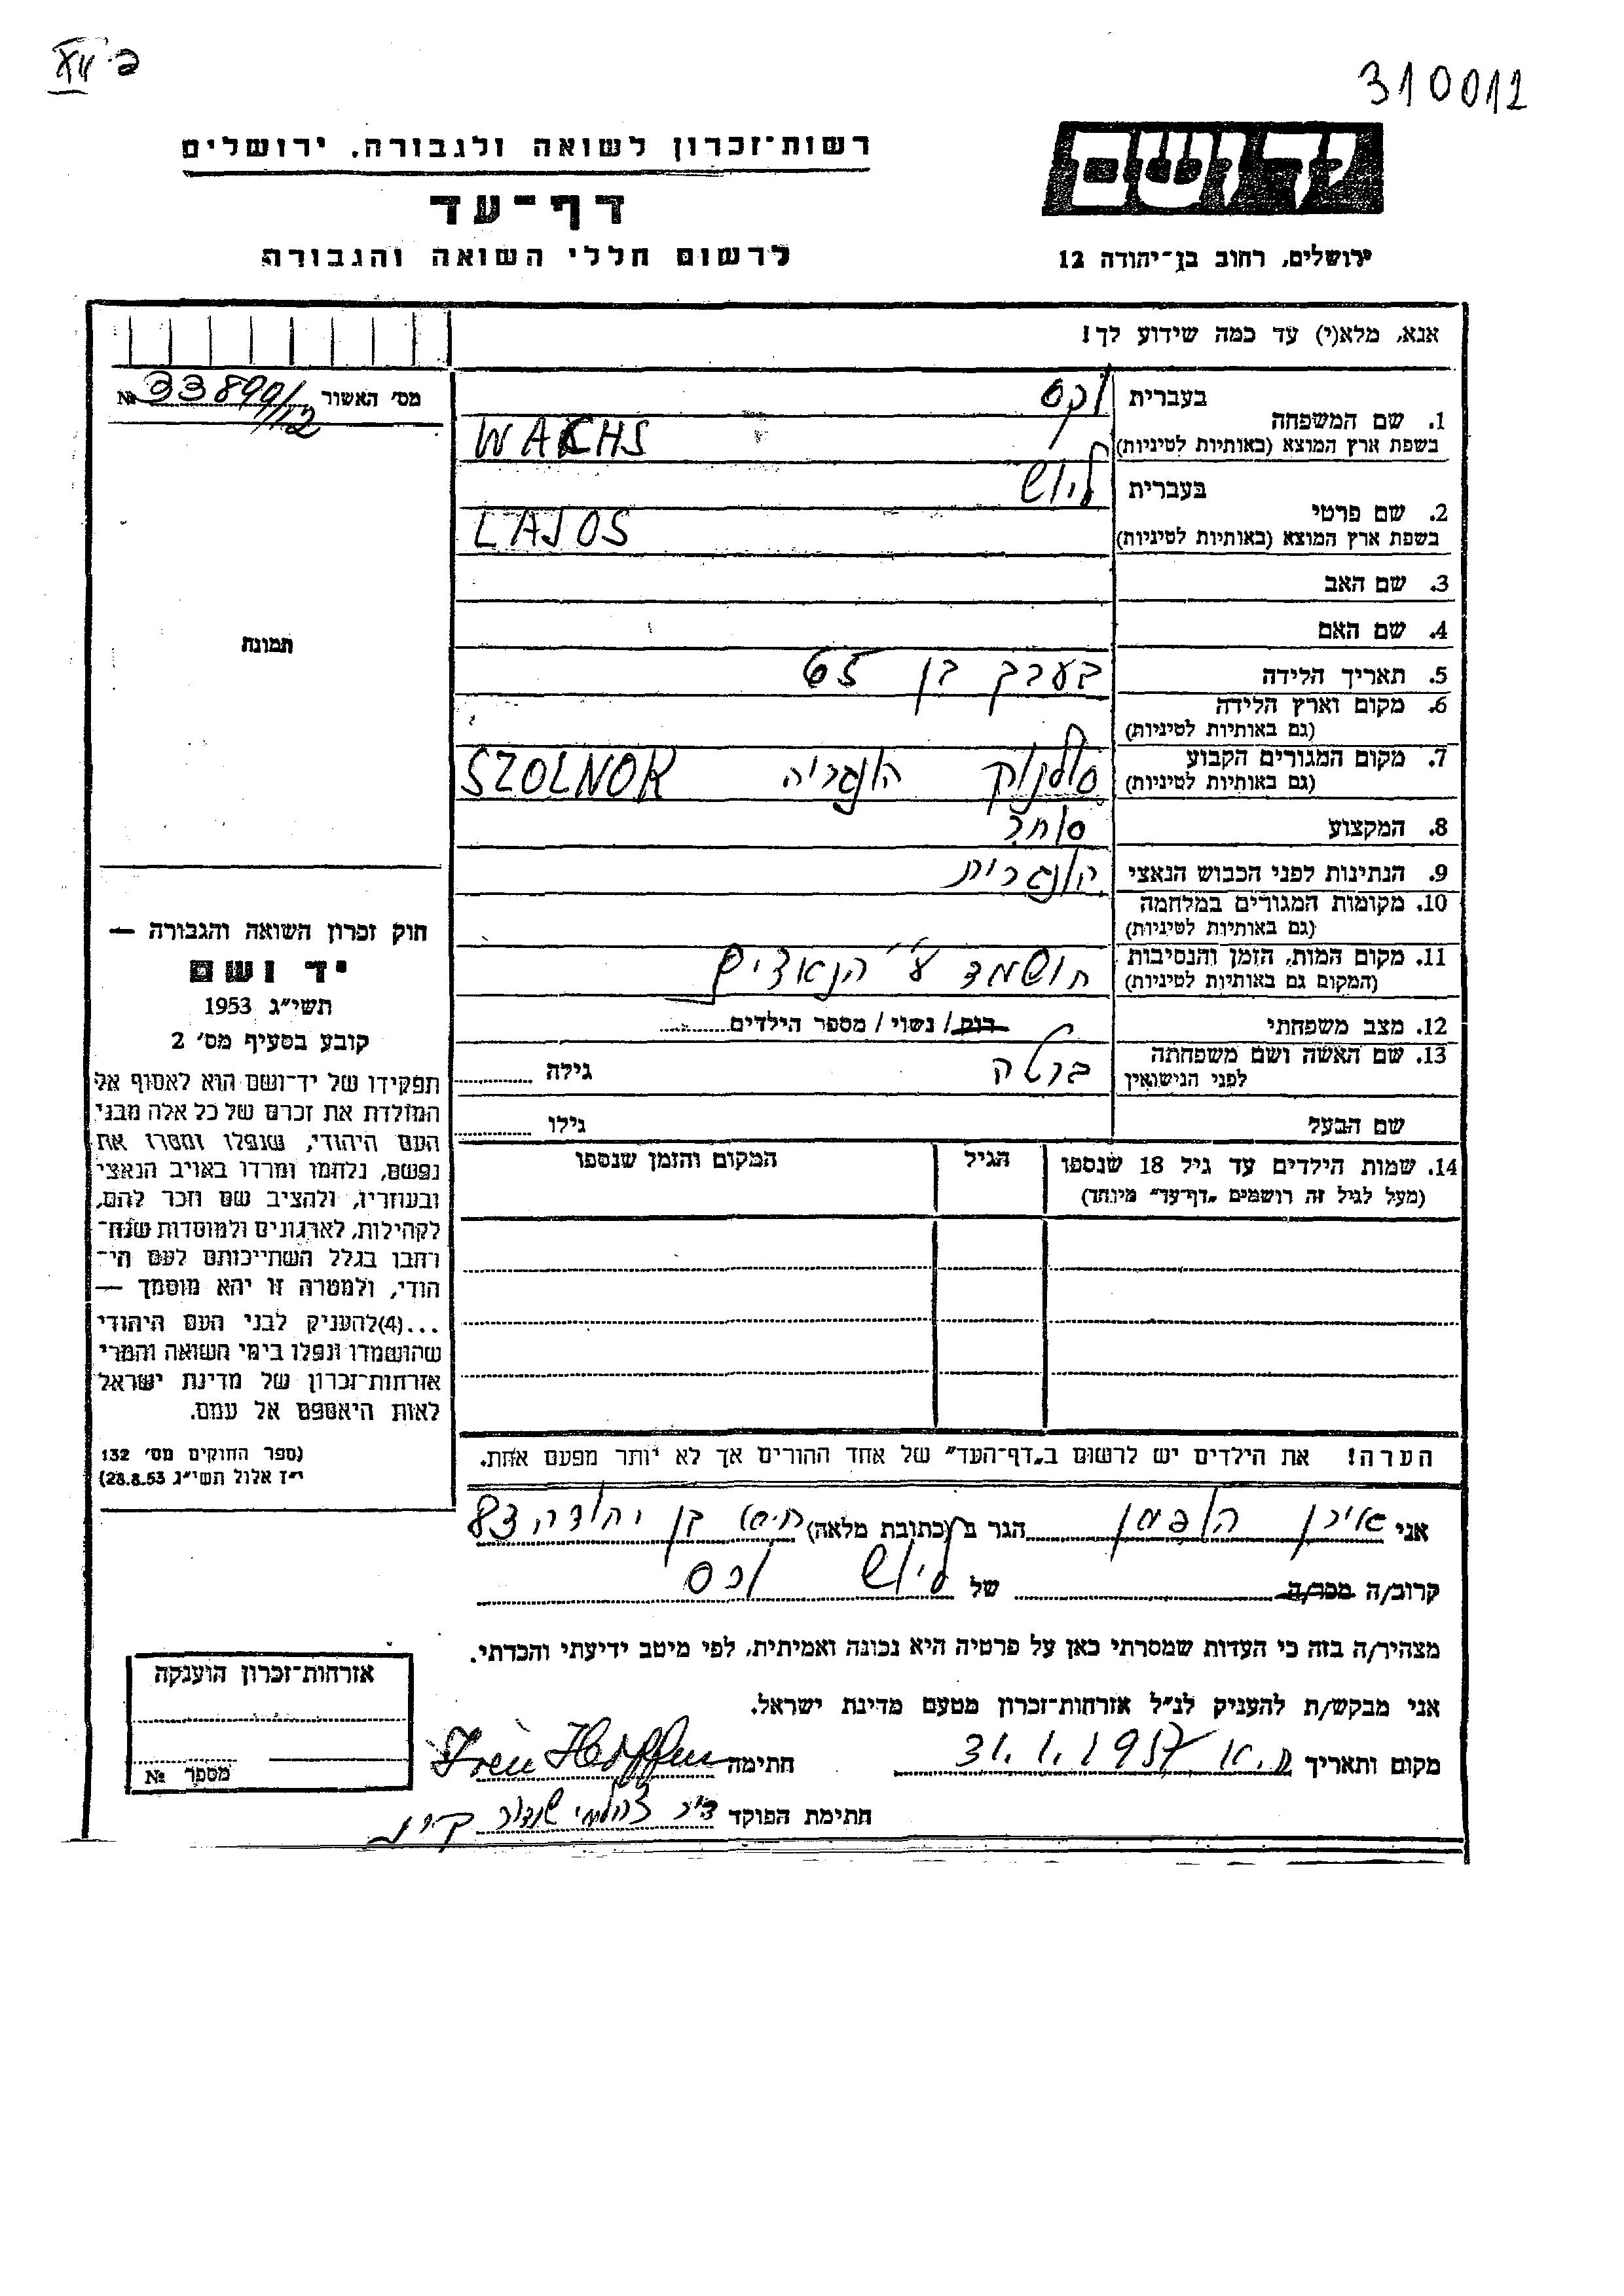 310012
ב. XII
יד ושם
ירושלים, רחוב בן־יהודה 12
רשות־זכרון לשואה ולגבורה, ירושלים
דף־עד
לרשום חללי השואה והגבורה
אנא, מלא(י) עד כמה שידוע לך!
מס׳ האשור 33890/12 №
1. שם המשפחה
בעברית וקס
בשפת ארץ המוצא (באותיות לטיניות) WACHS
2. שם פרטי
בעברית ליוש
בשפת ארץ המוצא (באותיות לטיניות) LAJOS
3. שם האב
4. שם האם
5. תאריך הלידה בערך בן 65
6. מקום וארץ הלידה
(גם באותיות לטיניות)
7. מקום המגורים הקבוע סולנוק הונגריה SZOLNOK
(גם באותיות לטיניות)
8. המקצוע סוחר
9. הנתינות לפני הכבוש הנאצי הונגרית
10. מקומות המגורים במלחמה
(גם באותיות לטיניות)
11. מקום המות, הזמן והנסיבות הושמד ע״י הנאצים
(המקום גם באותיות לטיניות)
12. מצב משפחתי רוק / נשוי / מספר הילדים
13. שם האשה ושם משפחתה ברטה גילה
לפני הנישואין
שם הבעל גילו
14. שמות הילדים עד גיל 18 שנספו הגיל המקום והזמן שנספו
(מעל לגיל זה רושמים „דף־עד״ מיוחד)
הערה! את הילדים יש לרשום ב„דף־העד״ של אחד ההורים אך לא יותר מפעם אחת.
תמונה
חוק זכרון השואה והגבורה —
יד ושם
תשי״ג 1953
קובע בסעיף מס׳ 2
תפקידו של יד־ושם הוא לאסוף אל
המולדת את זכרם של כל אלה מבני
העם היהודי, שנפלו ומסרו את
נפשם, נלחמו ומרדו באויב הנאצי
ובעוזריו, ולהציב שם וזכר להם,
לקהילות, לארגונים ולמוסדות שנח־
רחבו בגלל השתייכותם לעם הי־
הודי, ולמטרה זו יהא מוסמך —
...(4) להעניק לבני העם היהודי
שהושמדו ונפלו בימי השואה והמרי
אזרחות־זכרון של מדינת ישראל
לאות היאספם אל עמם.
(ספר החוקים מס׳ 132
י״ז אלול תשי״ג 28.8.53)
אני אירן הופמן הגר ב (כתובת מלאה) בן יהודה 83
קרוב/ה מכר/ה של ליוש וכס
מצהיר/ה בזה כי העדות שמסרתי כאן על פרטיה היא נכונה ואמיתית, לפי מיטב ידיעתי והכרתי.
אני מבקש/ת להעניק לנ״ל אזרחות־זכרון מטעם מדינת ישראל.
מקום ותאריך ת.א 31.1.1957 חתימה Iren Hoffman
חתימת הפוקד ד״ר
אזרחות־זכרון הוענקה
מספר №